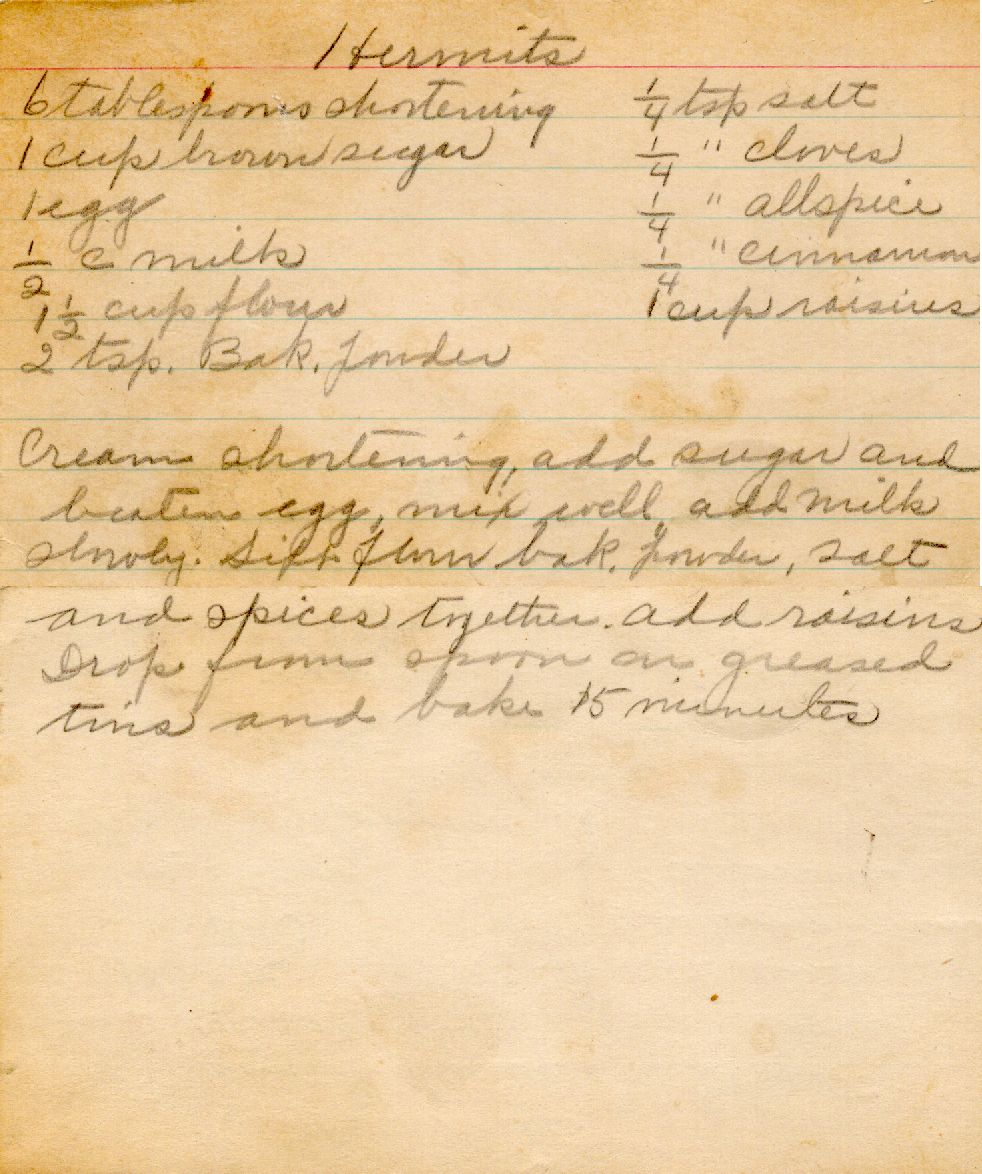 Hermits
6 tablespoons shortening
1 cup brown sugar
1 egg
1/2 c milk
1 1/2 cup flour
2 tsp. Bak. powder
1/4 tsp salt
1/4 " cloves
1/4 " allspice
1/4 " cinnamon
1 cup raisins
Cream shortening, add sugar and
beaten egg, mix well, add milk
slowly. Sift flour bak. powder, salt
and spices together. add raisins
Drop from spoon on greased
tins and bake 15 minutes